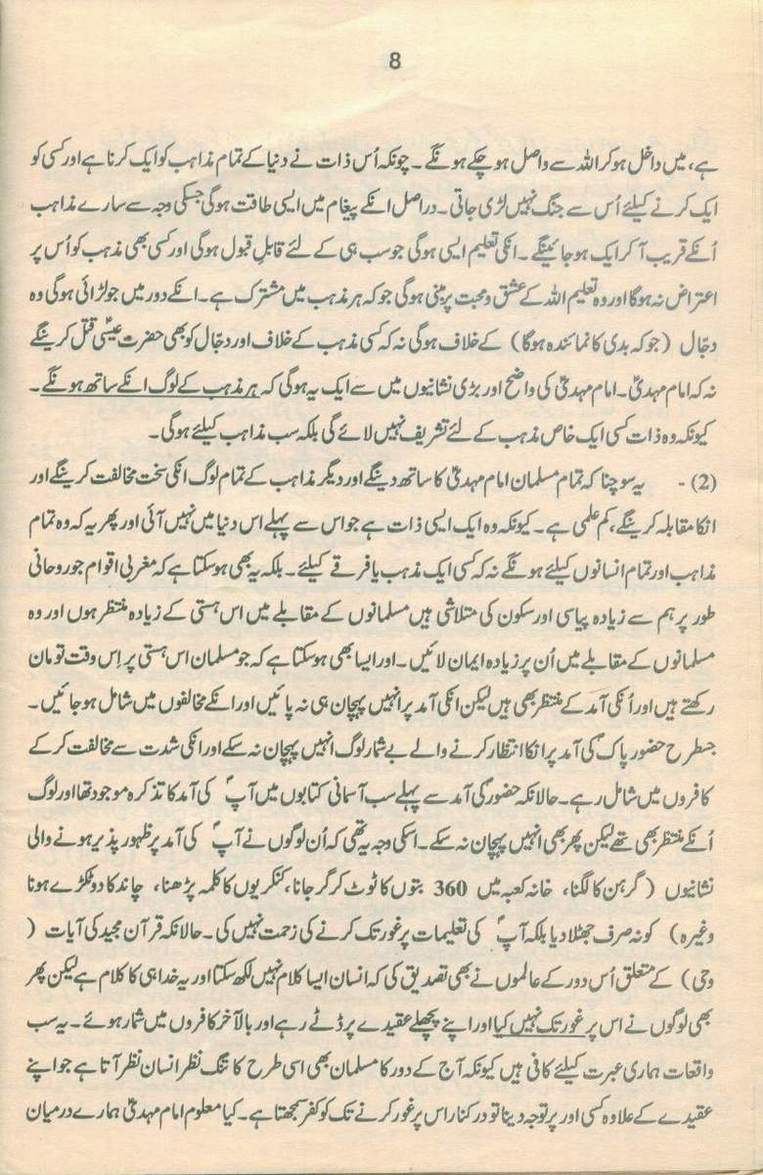 8
ہے، میں داخل ہو کر اللہ سے واصل ہو چکے ہونگے۔ چونکہ اُس ذات نے دنیا کے تمام مذاہب کو ایک کرنا ہے اور کسی کو
ایک کرنے کیلئے اُس سے جنگ نہیں لڑی جاتی۔ دراصل انکے پیغام میں ایسی طاقت ہوگی جسکی وجہ سے سارے مذاہب
اُنکے قریب آ کر ایک ہو جائینگے۔ انکی تعلیم ایسی ہوگی جو سب ہی کے لئے قابلِ قبول ہوگی اور کسی بھی مذہب کو اُس پر
اعتراض نہ ہوگا اور وہ تعلیم اللہ کے عشق و محبت پر مبنی ہوگی جو کہ ہر مذہب میں مشترک ہے۔ انکے دور میں جو لڑائی ہوگی وہ
دجّال (جو کہ بدی کا نمائندہ ہوگا) کے خلاف ہوگی نہ کہ کسی مذہب کے خلاف اور دجّال کو بھی حضرت عیسیٰؑ قتل کرینگے
نہ کہ امام مہدیؑ۔ امام مہدیؑ کی واضح اور بڑی نشانیوں میں سے ایک یہ ہوگی کہ ہر مذہب کے لوگ انکے ساتھ ہونگے۔
کیونکہ وہ ذات کسی ایک خاص مذہب کے لئے تشریف نہیں لائے گی بلکہ سب مذاہب کیلئے ہوگی۔
(2)- یہ سوچنا کہ تمام مسلمان امام مہدیؑ کا ساتھ دینگے اور دیگر مذاہب کے تمام لوگ انکی سخت مخالفت کرینگے اور
انکا مقابلہ کرینگے، کم علمی ہے۔ کیونکہ وہ ایک ایسی ذات ہے جو اس سے پہلے اس دنیا میں نہیں آئی اور پھر یہ کہ وہ تمام
مذاہب اور تمام انسانوں کیلئے ہونگے نہ کہ کسی ایک مذہب یا فرقے کیلئے۔ بلکہ یہ بھی ہو سکتا ہے کہ مغربی اقوام جو روحانی
طور پر ہم سے زیادہ پیاسی اور سکون کی متلاشی ہیں مسلمانوں کے مقابلے میں اس ہستی کے زیادہ منتظر ہوں اور وہ
مسلمانوں کے مقابلے میں اُن پر زیادہ ایمان لائیں۔ اور ایسا بھی ہو سکتا ہے کہ جو مسلمان اس ہستی پر اِس وقت تو مان
رکھتے ہیں اور اُنکی آمد کے منتظر بھی ہیں لیکن انکی آمد پر انہیں پہچان ہی نہ پائیں اور انکے مخالفوں میں شامل ہو جائیں۔
جسطرح حضور پاکؐ کی آمد پر انکا انتظار کرنے والے بے شمار لوگ انہیں پہچان نہ سکے اور انکی شدت سے مخالفت کر کے
کافروں میں شامل رہے۔ حالانکہ حضورؐ کی آمد سے پہلے سب آسمانی کتابوں میں آپؐ کی آمد کا تذکرہ موجود تھا اور لوگ
اُنکے منتظر بھی تھے لیکن پھر بھی انہیں پہچان نہ سکے۔ اسکی وجہ یہ تھی کہ اُن لوگوں نے آپؐ کی آمد پر ظہور پذیر ہونے والی
نشانیوں (گرہن کا لگنا، خانہ کعبہ میں 360 بتوں کا ٹوٹ کر گر جانا، کنکریوں کا کلمہ پڑھنا، چاند کا دو ٹکڑے ہونا
وغیرہ) کو نہ صرف جھٹلا دیا بلکہ آپؐ کی تعلیمات پر غور تک کرنے کی زحمت نہیں کی۔ حالانکہ قرآن مجید کی آیات (
وحی) کے متعلق اُس دور کے عالموں نے بھی تصدیق کی کہ انسان ایسا کلام نہیں لکھ سکتا اور یہ خدا ہی کا کلام ہے لیکن پھر
بھی لوگوں نے اس پر غور تک نہیں کیا اور اپنے پچھلے عقیدے پر ڈٹے رہے اور بالآخر کافروں میں شمار ہوئے۔ یہ سب
واقعات ہماری عبرت کیلئے کافی ہیں کیونکہ آج کے دور کا مسلمان بھی اسی طرح کا تنگ نظر انسان نظر آتا ہے جو اپنے
عقیدے کے علاوہ کسی اور پر توجہ دینا تو درکنار اس پر غور کرنے تک کو کفر سمجھتا ہے۔ کیا معلوم امام مہدیؑ ہمارے درمیان